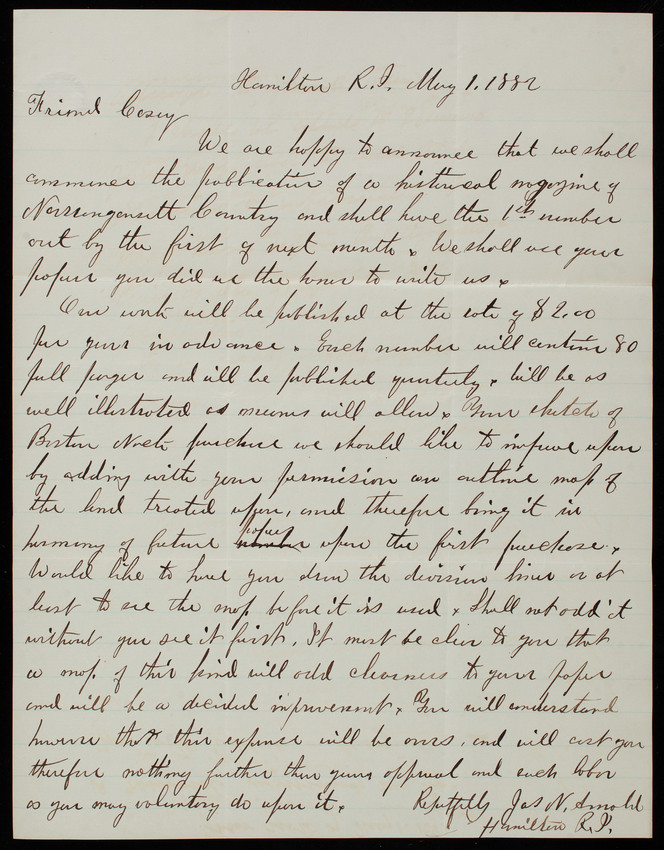 Hamilton R.I. May 1. 1882
Friend Casey
We are happy to announce that we shall
commence the publication of a historical magazine of
Narragansett Country and shall have the 1st number
out by the first of next month. We shall use your
paper you did us the honor to write us.
Our work will be published at the rate of $2.00
per year in advance. Each number will contain 80
full pages and will be published quarterly. Will be as
well illustrated as means will allow. Your sketch of
Boston Neck purchase we should like to improve upon
by adding with your permission an outline map of
the land treated upon, and therefore bring it in
harmony of future papers upon the first purchase.
Would like to have you draw the division lines or at
least to see the map before it is used. Shall not add it
without you see it first. It must be clear to you that
a map of this kind will add clearness to your paper
and will be a decided improvement. You will understand
however that this expense will be ours, and will cost you
therefore nothing further than your approval and such labor
as you may voluntary do upon it. Respectfully Jas N. Arnold
Hamilton R.I.